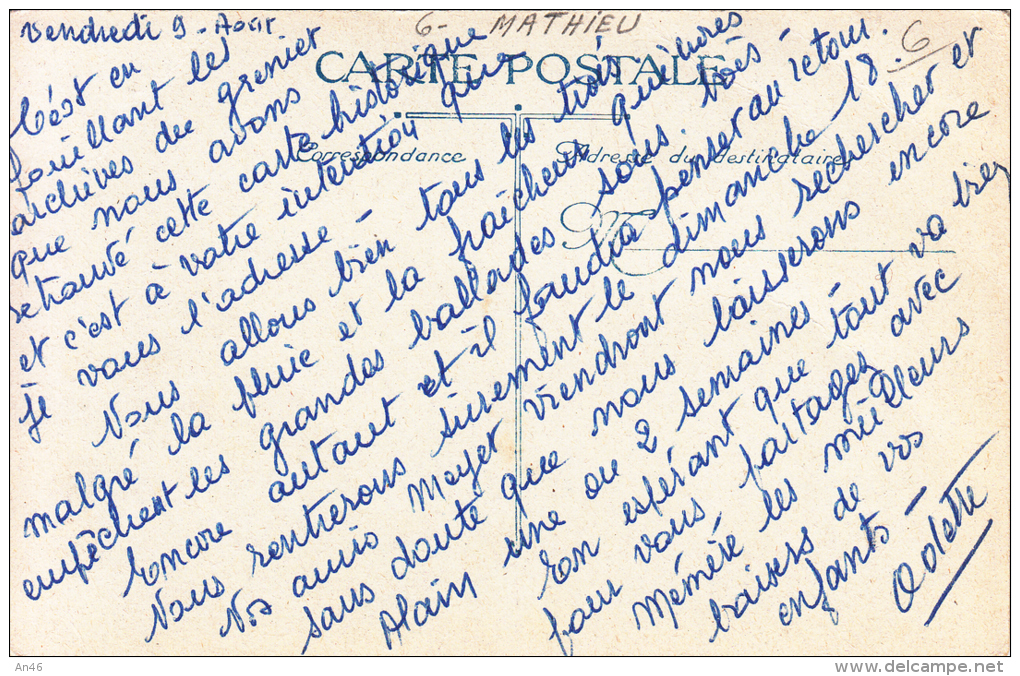 Vendredi 9 - Août
6 - MATHIEU
6
CARTE POSTALE
Correspondance
Adresse du destinataire
C'est en
fouillant les
archives du grenier
que nous avons
retrouvé cette carte historique
et c'est à votre intention que
je vous l'adresse -
Nous allons bien tous les trois
malgré la pluie et la fraîcheur qui
empêchent les grandes ballades sous bois -
Encore autant et il faudra penser au retour.
Nous rentrerons sûrement le dimanche 18.
Nos amis Mayet viendront nous rechercher et
sans doute que nous laisserons encore
Alain une ou 2 semaines -
En espérant que tout va bien
pour vous, partagez avec
Mémère les meilleurs
baisers de vos
enfants -
Odette
An46
www.delcampe.net